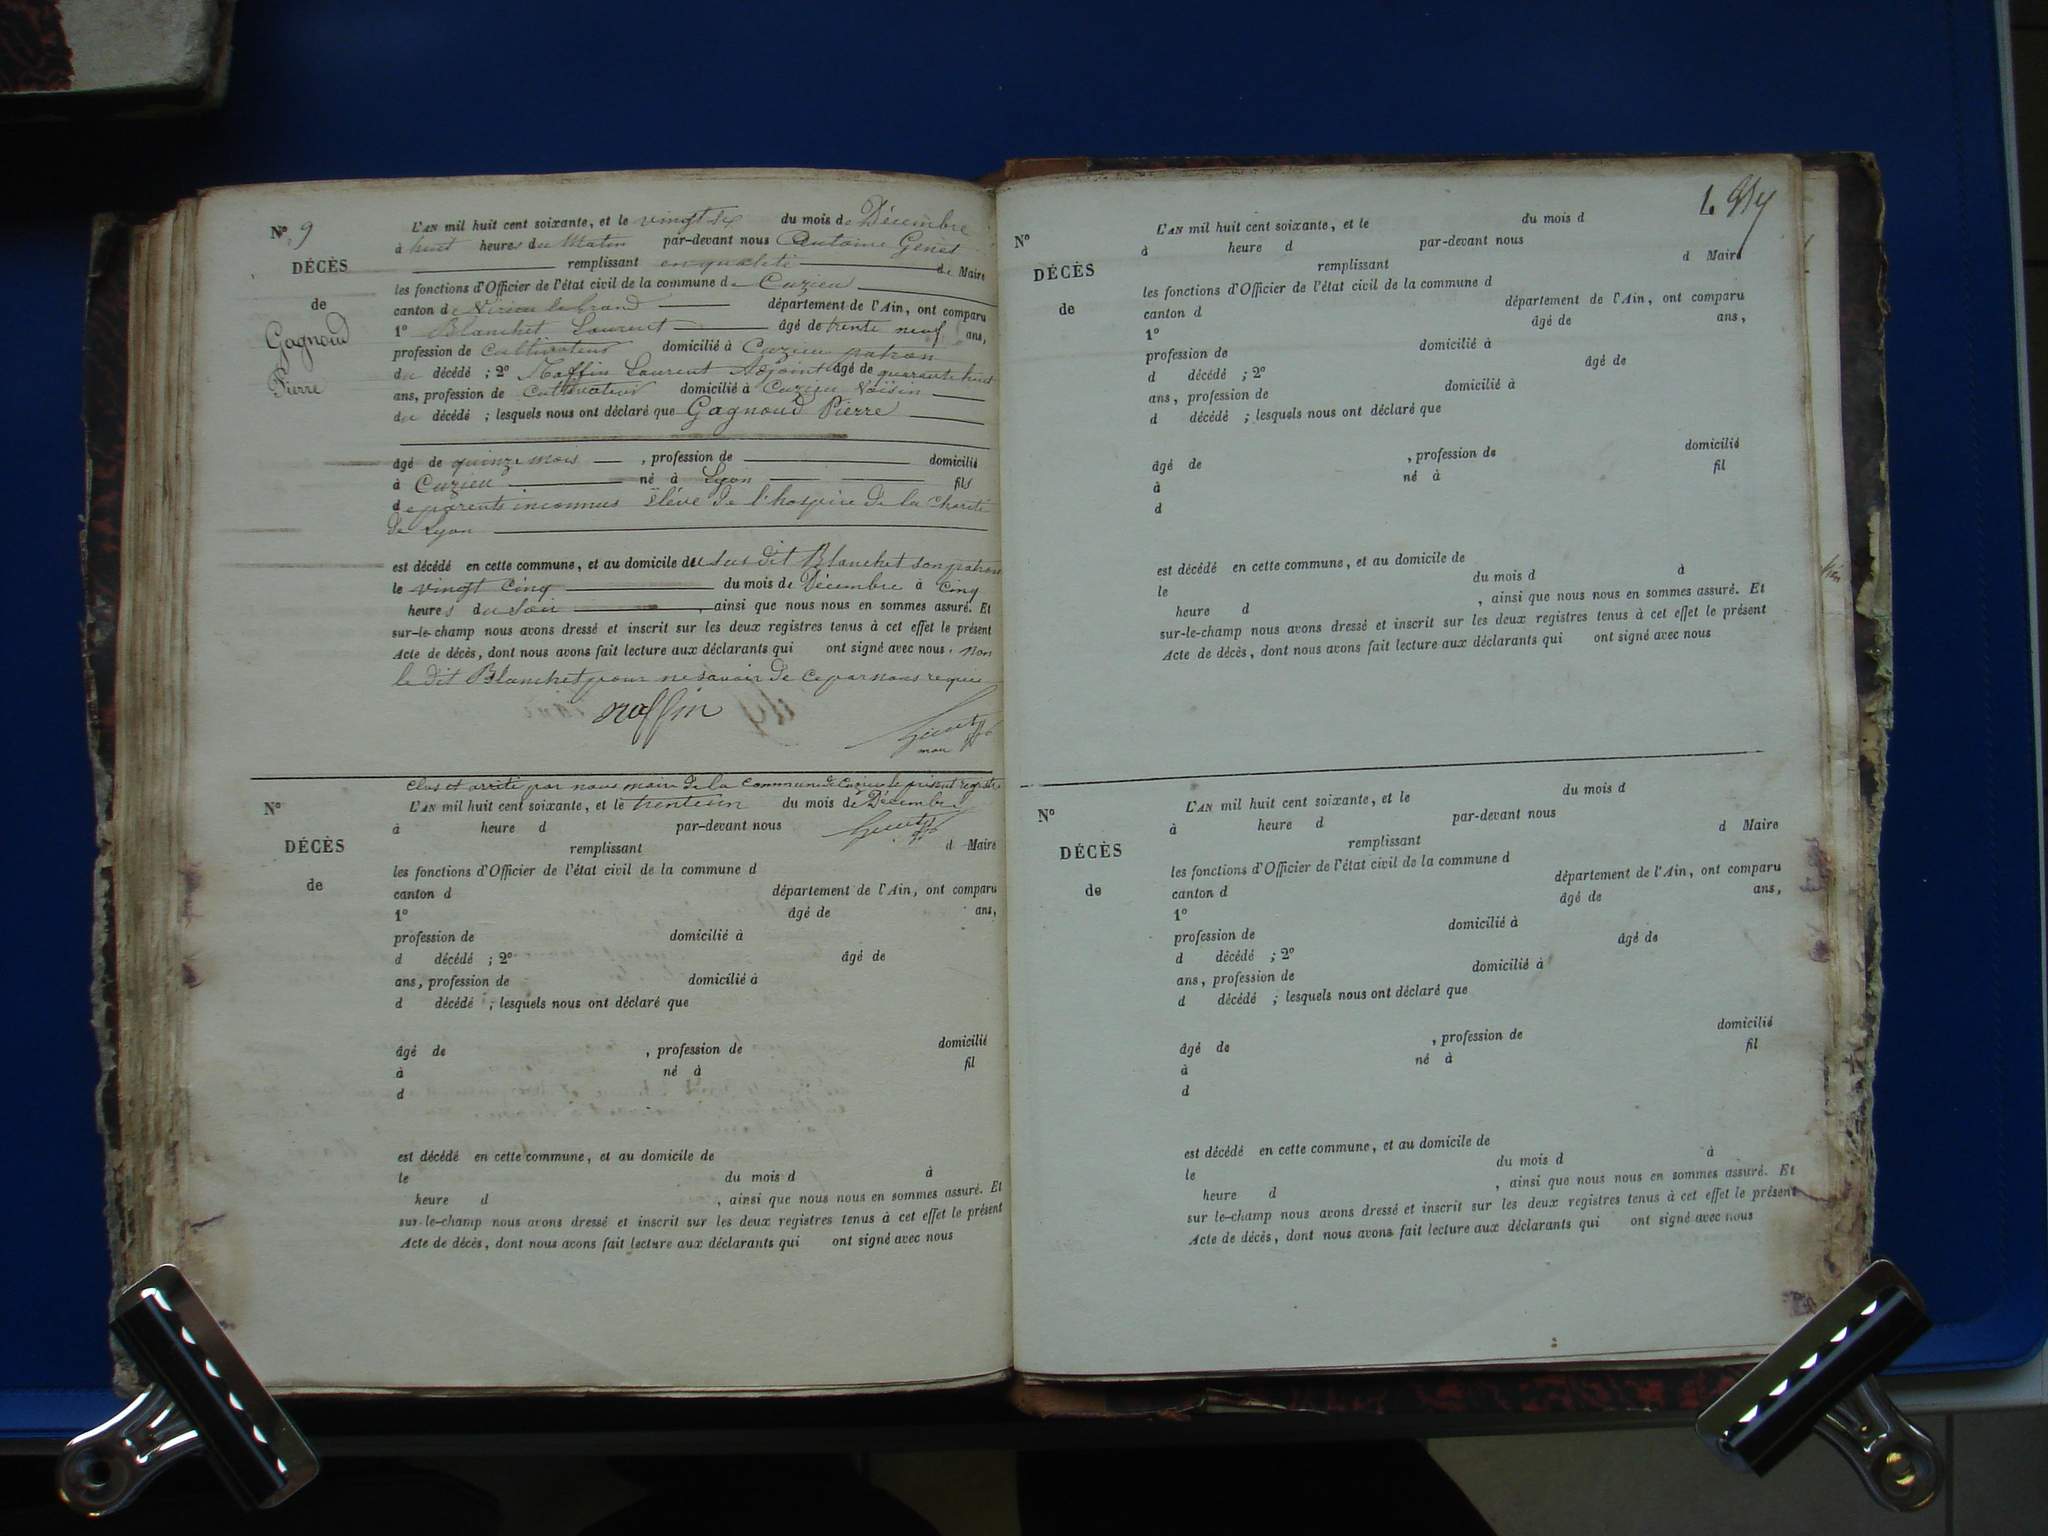 N° 9
DÉCÈS
de
Gagnoud
Pierre
L'AN mil huit cent soixante, et le vingt six du mois de Décembre
à huit heures du Matin par-devant nous Antoine Genet
remplissant en qualité de Maire
les fonctions d'Officier de l'état civil de la commune de Cuzieu
canton de Virieu le Grand département de l'Ain, ont comparu
1° Blanchet Laurent âgé de trente neuf ans,
profession de Cultivateur domicilié à Cuzieu patron
du décédé ; 2° Raffin Laurent Adjoint âgé de quarante huit
ans, profession de Cultivateur domicilié à Cuzieu Voisin
du décédé ; lesquels nous ont déclaré que Gagnoud Pierre
âgé de quinze mois , profession de domicilié
à Cuzieu né à Lyon fils
de parents inconnus élève de l'hospice de la charité
de Lyon
est décédé en cette commune, et au domicile du sus dit Blanchet son patron
le vingt cinq du mois de Décembre à cinq
heures du soir , ainsi que nous nous en sommes assuré. Et
sur-le-champ nous avons dressé et inscrit sur les deux registres tenus à cet effet le présent
Acte de décès, dont nous avons fait lecture aux déclarants qui ont signé avec nous. non
le dit Blanchet pour ne savoir de ce par nous requis
Raffin
Genet
maire
clos et arrêté par nous maire de la commune de Cuzieu le présent registre
N°
DÉCÈS
de
L'AN mil huit cent soixante, et le trente un du mois de Décembre
à heure d par-devant nous Genet
remplissant d Maire
les fonctions d'Officier de l'état civil de la commune d
canton d département de l'Ain, ont comparu
1° âgé de ans,
profession de domicilié à
d décédé ; 2° âgé de
ans, profession de domicilié à
d décédé ; lesquels nous ont déclaré que
âgé de , profession de domicilié
à né à fil
d
est décédé en cette commune, et au domicile de
le du mois d à
heure d , ainsi que nous nous en sommes assuré. Et
sur-le-champ nous avons dressé et inscrit sur les deux registres tenus à cet effet le présent
Acte de décès, dont nous avons fait lecture aux déclarants qui ont signé avec nous
N°
DÉCÈS
de
L'AN mil huit cent soixante, et le du mois d
à heure d par-devant nous
remplissant d Maire
les fonctions d'Officier de l'état civil de la commune d
canton d département de l'Ain, ont comparu
1° âgé de ans,
profession de domicilié à
d décédé ; 2° âgé de
ans, profession de domicilié à
d décédé ; lesquels nous ont déclaré que
âgé de , profession de domicilié
à né à fil
d
est décédé en cette commune, et au domicile de
le du mois d à
heure d , ainsi que nous nous en sommes assuré. Et
sur-le-champ nous avons dressé et inscrit sur les deux registres tenus à cet effet le présent
Acte de décès, dont nous avons fait lecture aux déclarants qui ont signé avec nous
N°
DÉCÈS
de
L'AN mil huit cent soixante, et le du mois d
à heure d par-devant nous
remplissant d Maire
les fonctions d'Officier de l'état civil de la commune d
canton d département de l'Ain, ont comparu
1° âgé de ans,
profession de domicilié à
d décédé ; 2° âgé de
ans, profession de domicilié à
d décédé ; lesquels nous ont déclaré que
âgé de , profession de domicilié
à né à fil
d
est décédé en cette commune, et au domicile de
le du mois d à
heure d , ainsi que nous nous en sommes assuré. Et
sur le-champ nous avons dressé et inscrit sur les deux registres tenus à cet effet le présent
Acte de décès, dont nous avons fait lecture aux déclarants qui ont signé avec nous